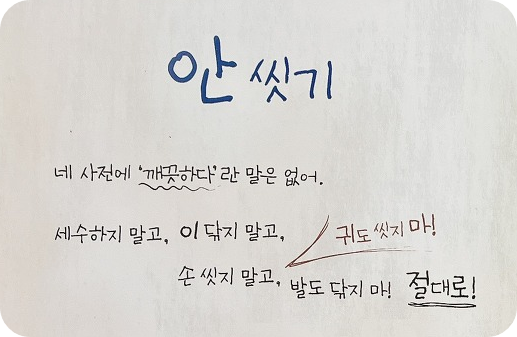 안 씻기
네 사전에 '깨끗하다'란 말은 없어.
세수하지 말고, 이 닦지 말고,
귀도 씻지 마!
손 씻지 말고, 발도 닦지 마! 절대로!